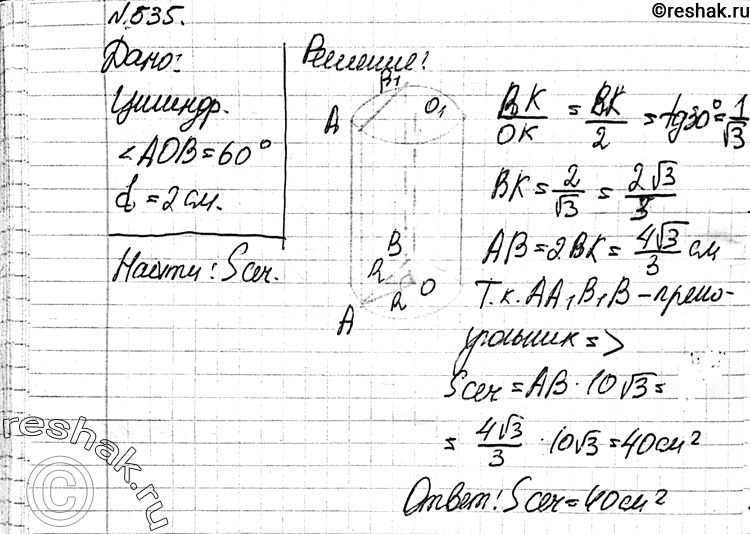 ©reshak.ru
N.535.
Дано:
Цилиндр.
<AOB=60°
d=2см.
Найти: Sсеч.
Решение:
B1
O1
A
B
R
R
O
A
BK/OK = BK/2 = tg30° = 1/√3
BK = 2/√3 = 2√3/3
AB=2BK= 4√3/3 см
Т.к. AA1B1B – прямо-
угольник =>
Sсеч = AB · 10√3 =
= 4√3/3 · 10√3 = 40см²
Ответ: Sсеч=40см²
©reshak.ru